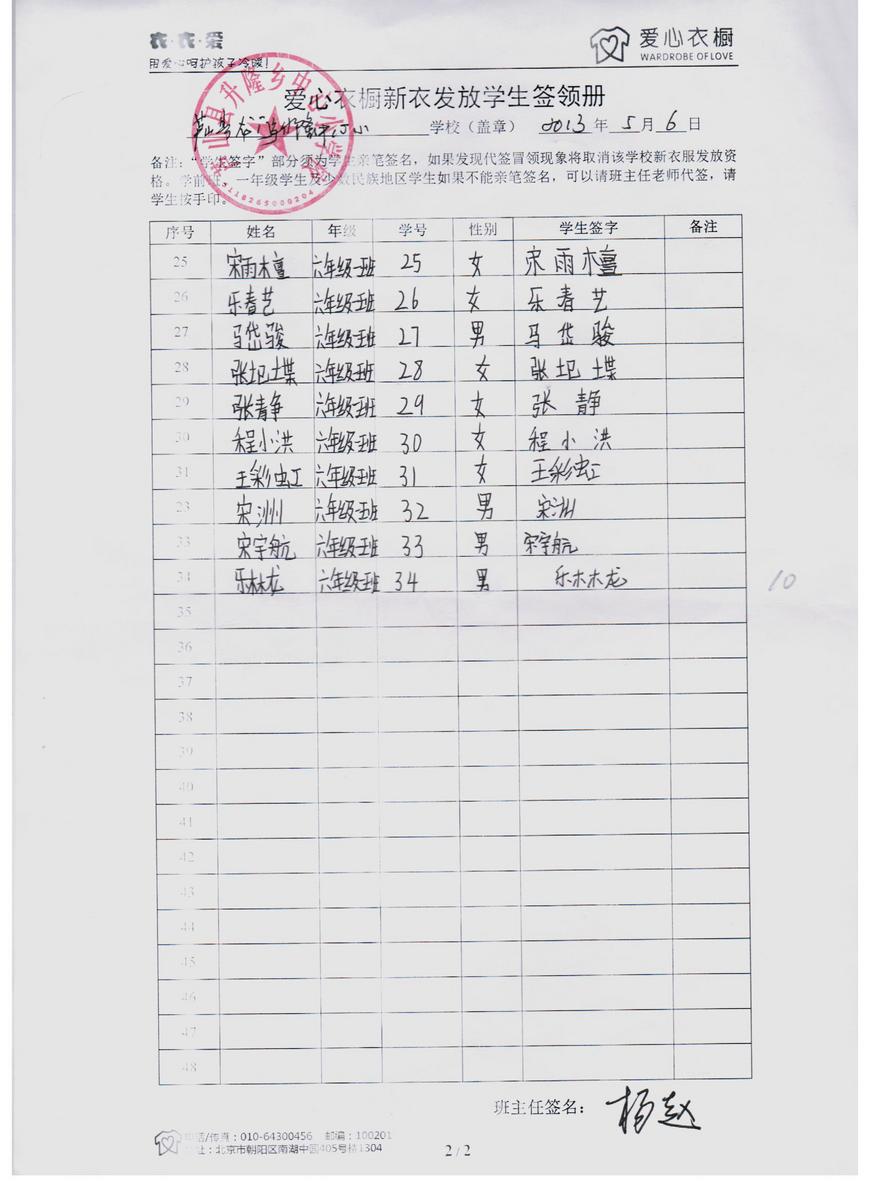 衣·衣·爱
用爱心呵护孩子冷暖!
爱心衣橱
WARDROBE OF LOVE
爱心衣橱新衣发放学生签领册
学校（盖章） 2013 年 5 月 6 日
山县升隆乡中心小学校
5118265000204
备注：“学生签字”部分须为学生亲笔签名，如果发现代签冒领现象将取消该学校新衣服发放资
格。学前班、一年级学生及少数民族地区学生如果不能亲笔签名，可以请班主任老师代签，请
学生按手印。
序号 姓名 年级 学号 性别 学生签字 备注
25 宋雨檀 六年级一班 25 女 宋雨檀
26 乐春艺 六年级一班 26 女 乐春艺
27 马岱骏 六年级一班 27 男 马岱骏
28 张圯堞 六年级一班 28 女 张圯堞
29 张静 六年级一班 29 女 张静
30 程小洪 六年级一班 30 女 程小洪
31 王彩虹 六年级一班 31 女 王彩虹
23 宋洲 六年级一班 32 男 宋洲
33 宋宇航 六年级一班 33 男 宋宇航
34 乐林龙 六年级一班 34 男 乐林龙
10
35
36
37
38
39
40
41
42
43
44
45
46
47
48
班主任签名： 杨赵
电话/传真：010-64300456 邮编：100201
地址：北京市朝阳区南湖中园405号楼1304
2 / 2